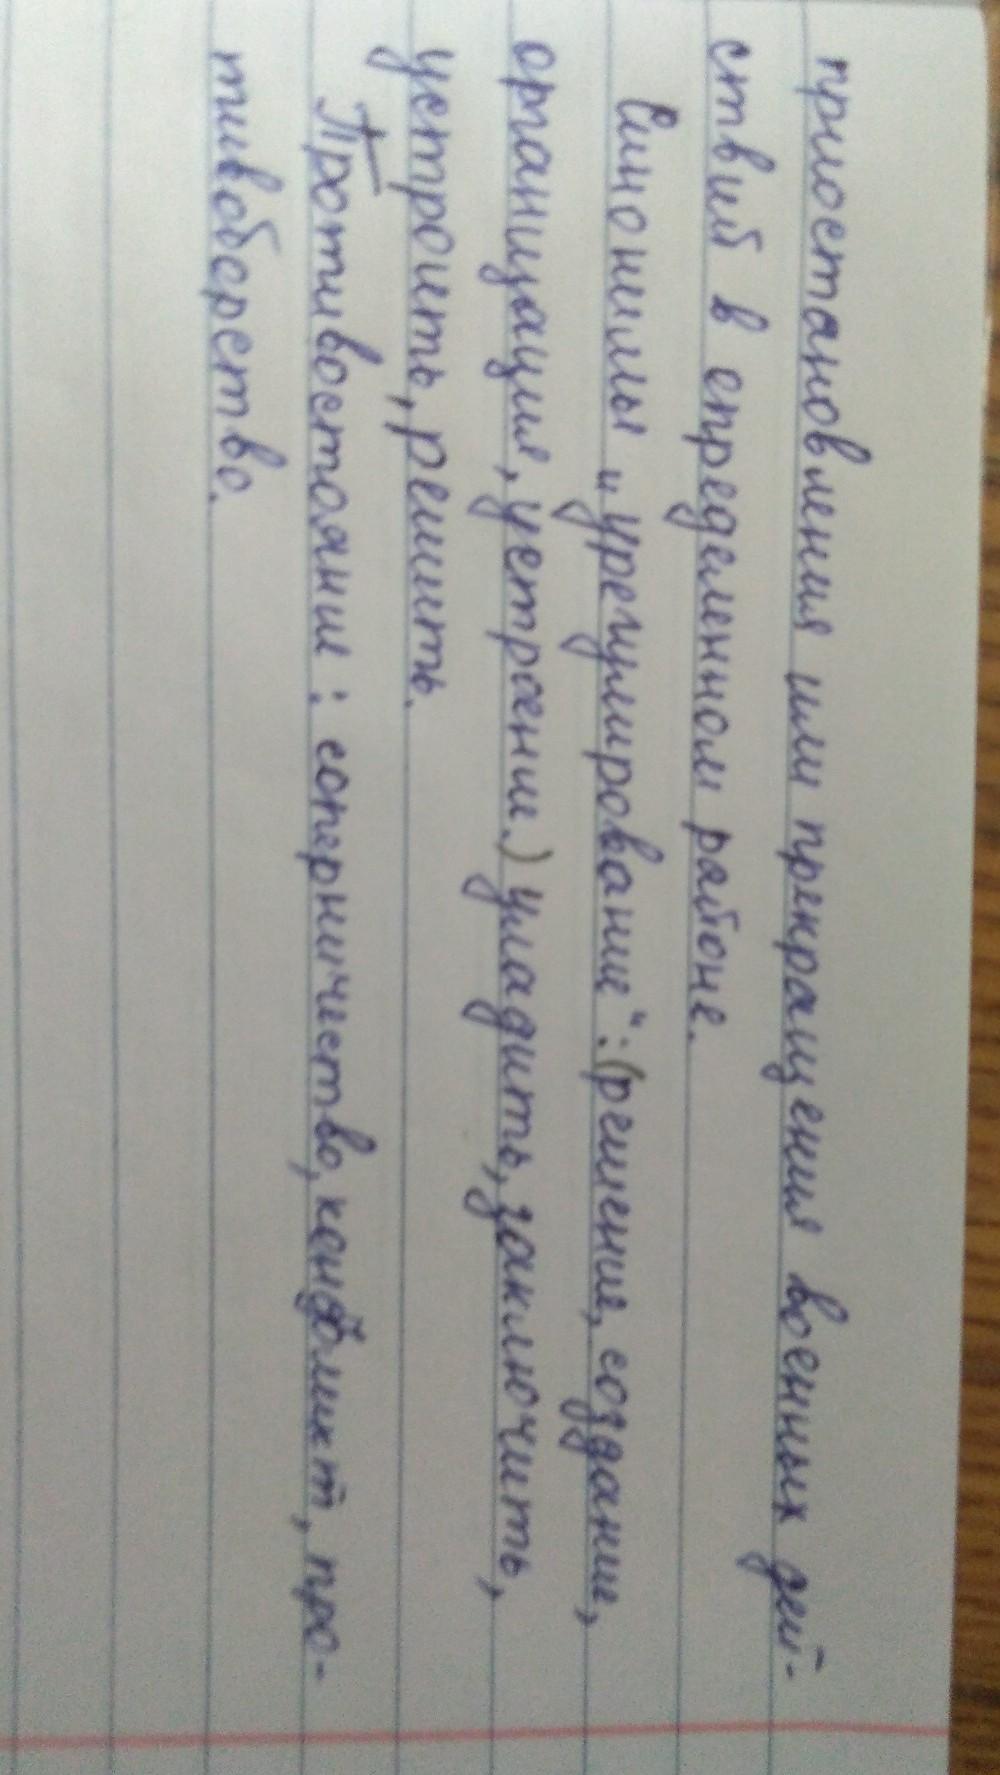 приостановления или прекращения военных дей-
ствий в определенном районе.
Синонимы „урегулирование“: (решение, создание,
организация, устроение.) уладить, заключить,
устроить, решить.
Противостояние: соперничество, конфликт, про-
тивоборство.